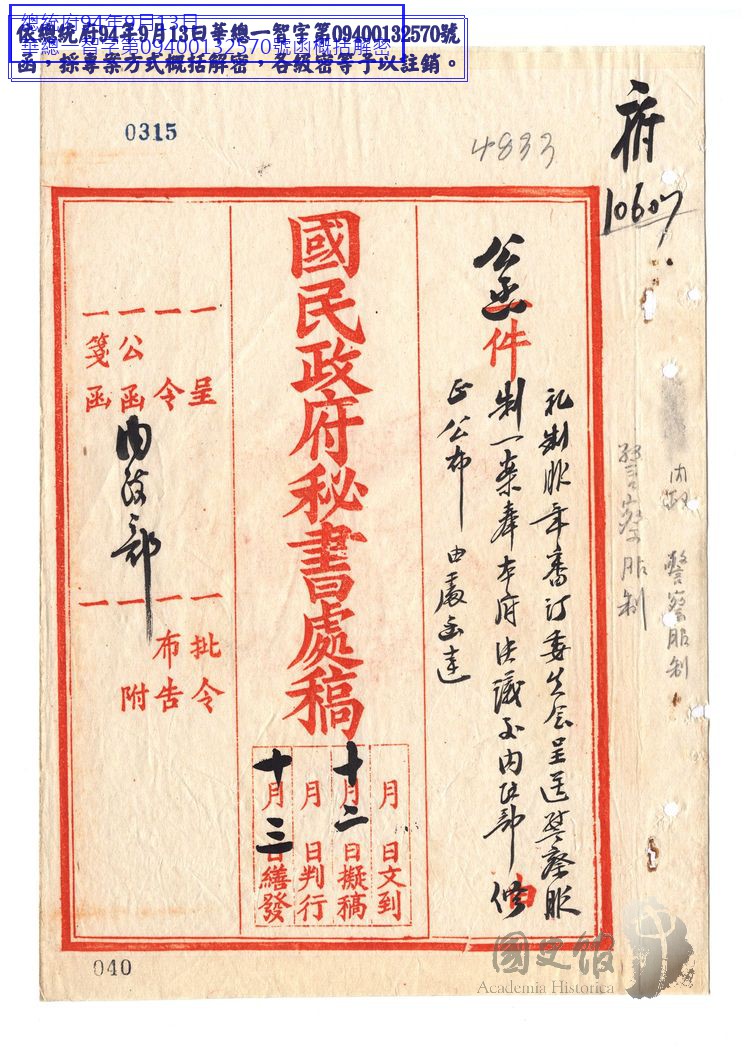 總統府94年9月13日
華總一智字第09400132570號函概括解密
依總統府94年9月13日華總一智字第09400132570號
函,採專案方式概括解密,各級密等予以註銷。
0315
4833
府
10607
內政 警察服制
警察服制
公函件
禮制服章審訂委員會呈送警察服
制一案奉本府決議交內政部修
正公布由處函達
由
國民政府秘書處稿
一呈
一令
一公函 內政部
一箋函
一批令
布告
一附
一
月 日文到
十月二日擬稿
月 日判行
十月三日繕發
040
國史館
Academia Historica